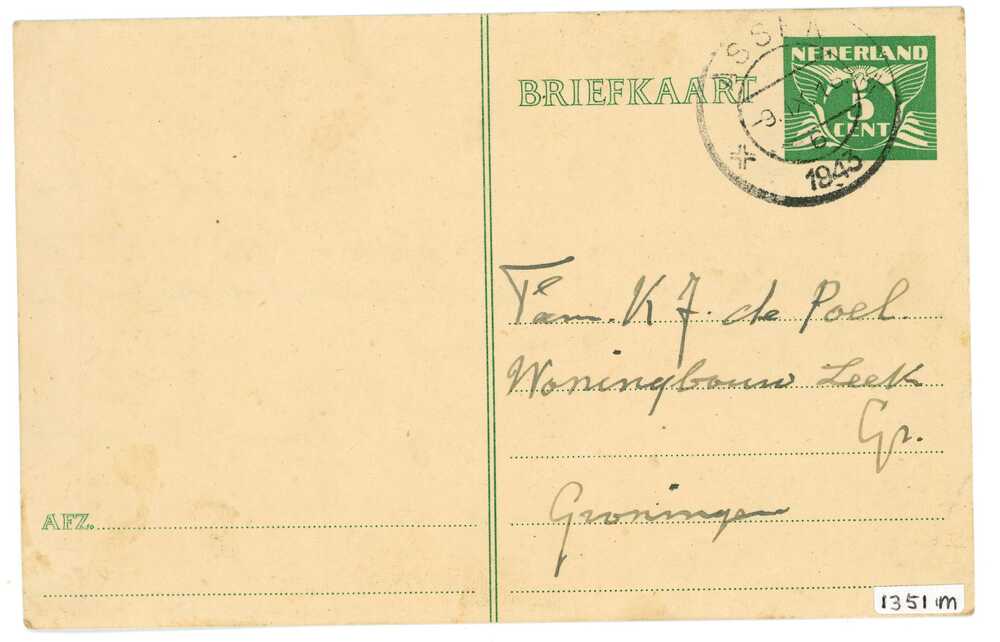 BRIEFKAART
NEDERLAND
5
CENT
1943
Fam. K J. de Poel.
Woningbouw Leek
Gr.
Groningen
AFZ.
1351 m